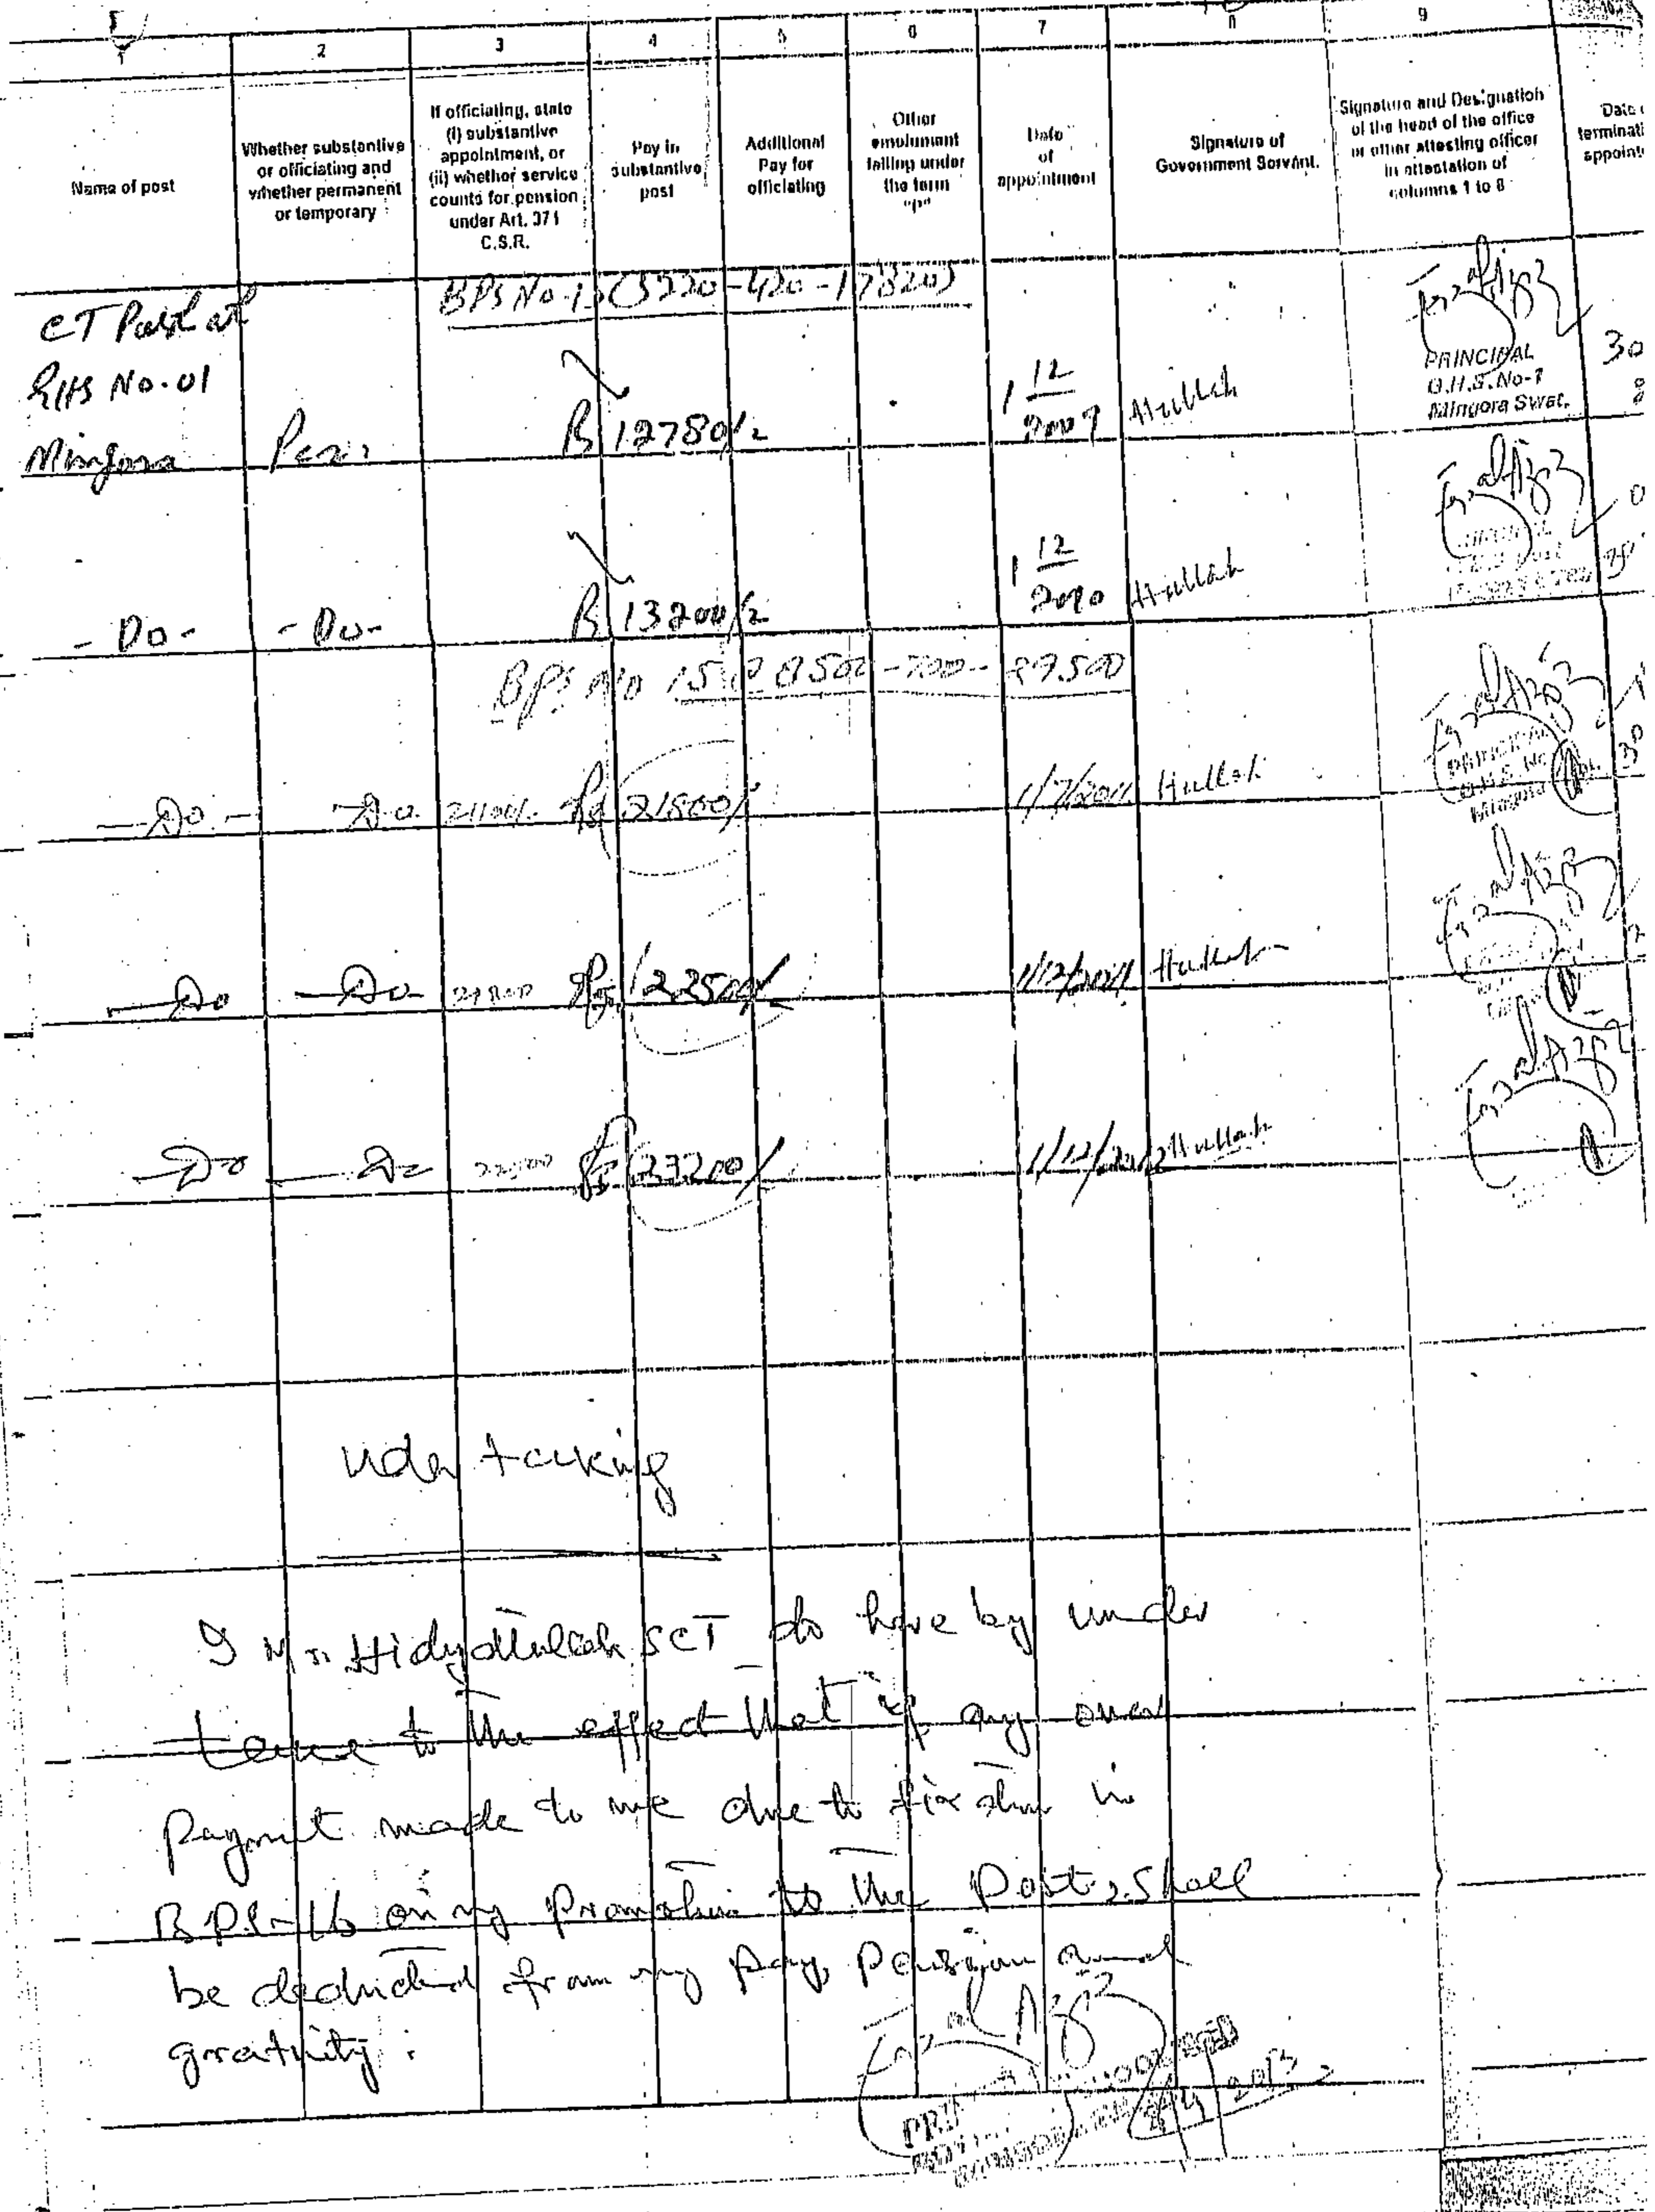 1 2 3 4 5 6 7 8 9
Name of post
Whether substantive
or officiating and
whether permanent
or temporary
If officiating, state
(i) substantive
appointment, or
(ii) whether service
counts for pension
under Art. 371
C.S.R.
Pay in
substantive
post
Additional
Pay for
officiating
Other
emolument
falling under
the term
"p"
Date
of
appointment
Signature of
Government Servant.
Signature and Designation
of the head of the office
or other attesting officer
in attestation of
columns 1 to 8
Date
BPS No. 15 (5220-420-17820)
CT Post at
GHS No.01
Mingora
12780/-
1 12
2009
Hullah
PRINCIPAL
G.H.S. No-1
Mingora Swat.
30
- Do - - Do - 13200/- 1 12
2010 Hullah
BPS No 15 8500-700-29500
- Do - - Do 21800/- 1/7/2011 Hullah
PRINCIPAL
Mingora
- Do - Do 21800 Rs 22500/- 1/12/2011 Hullah
- Do - Do 22500 Rs 23200/- 1/12/2012 Hullah
Uder taking
I Mr. Hidyatullah SCT do here by under
take to the effect that if any over
Payment made to me due to fixation in
BPS-16 on my promotion to the Post, shall
be deducted from my pay, pension and
gratuity.
2013